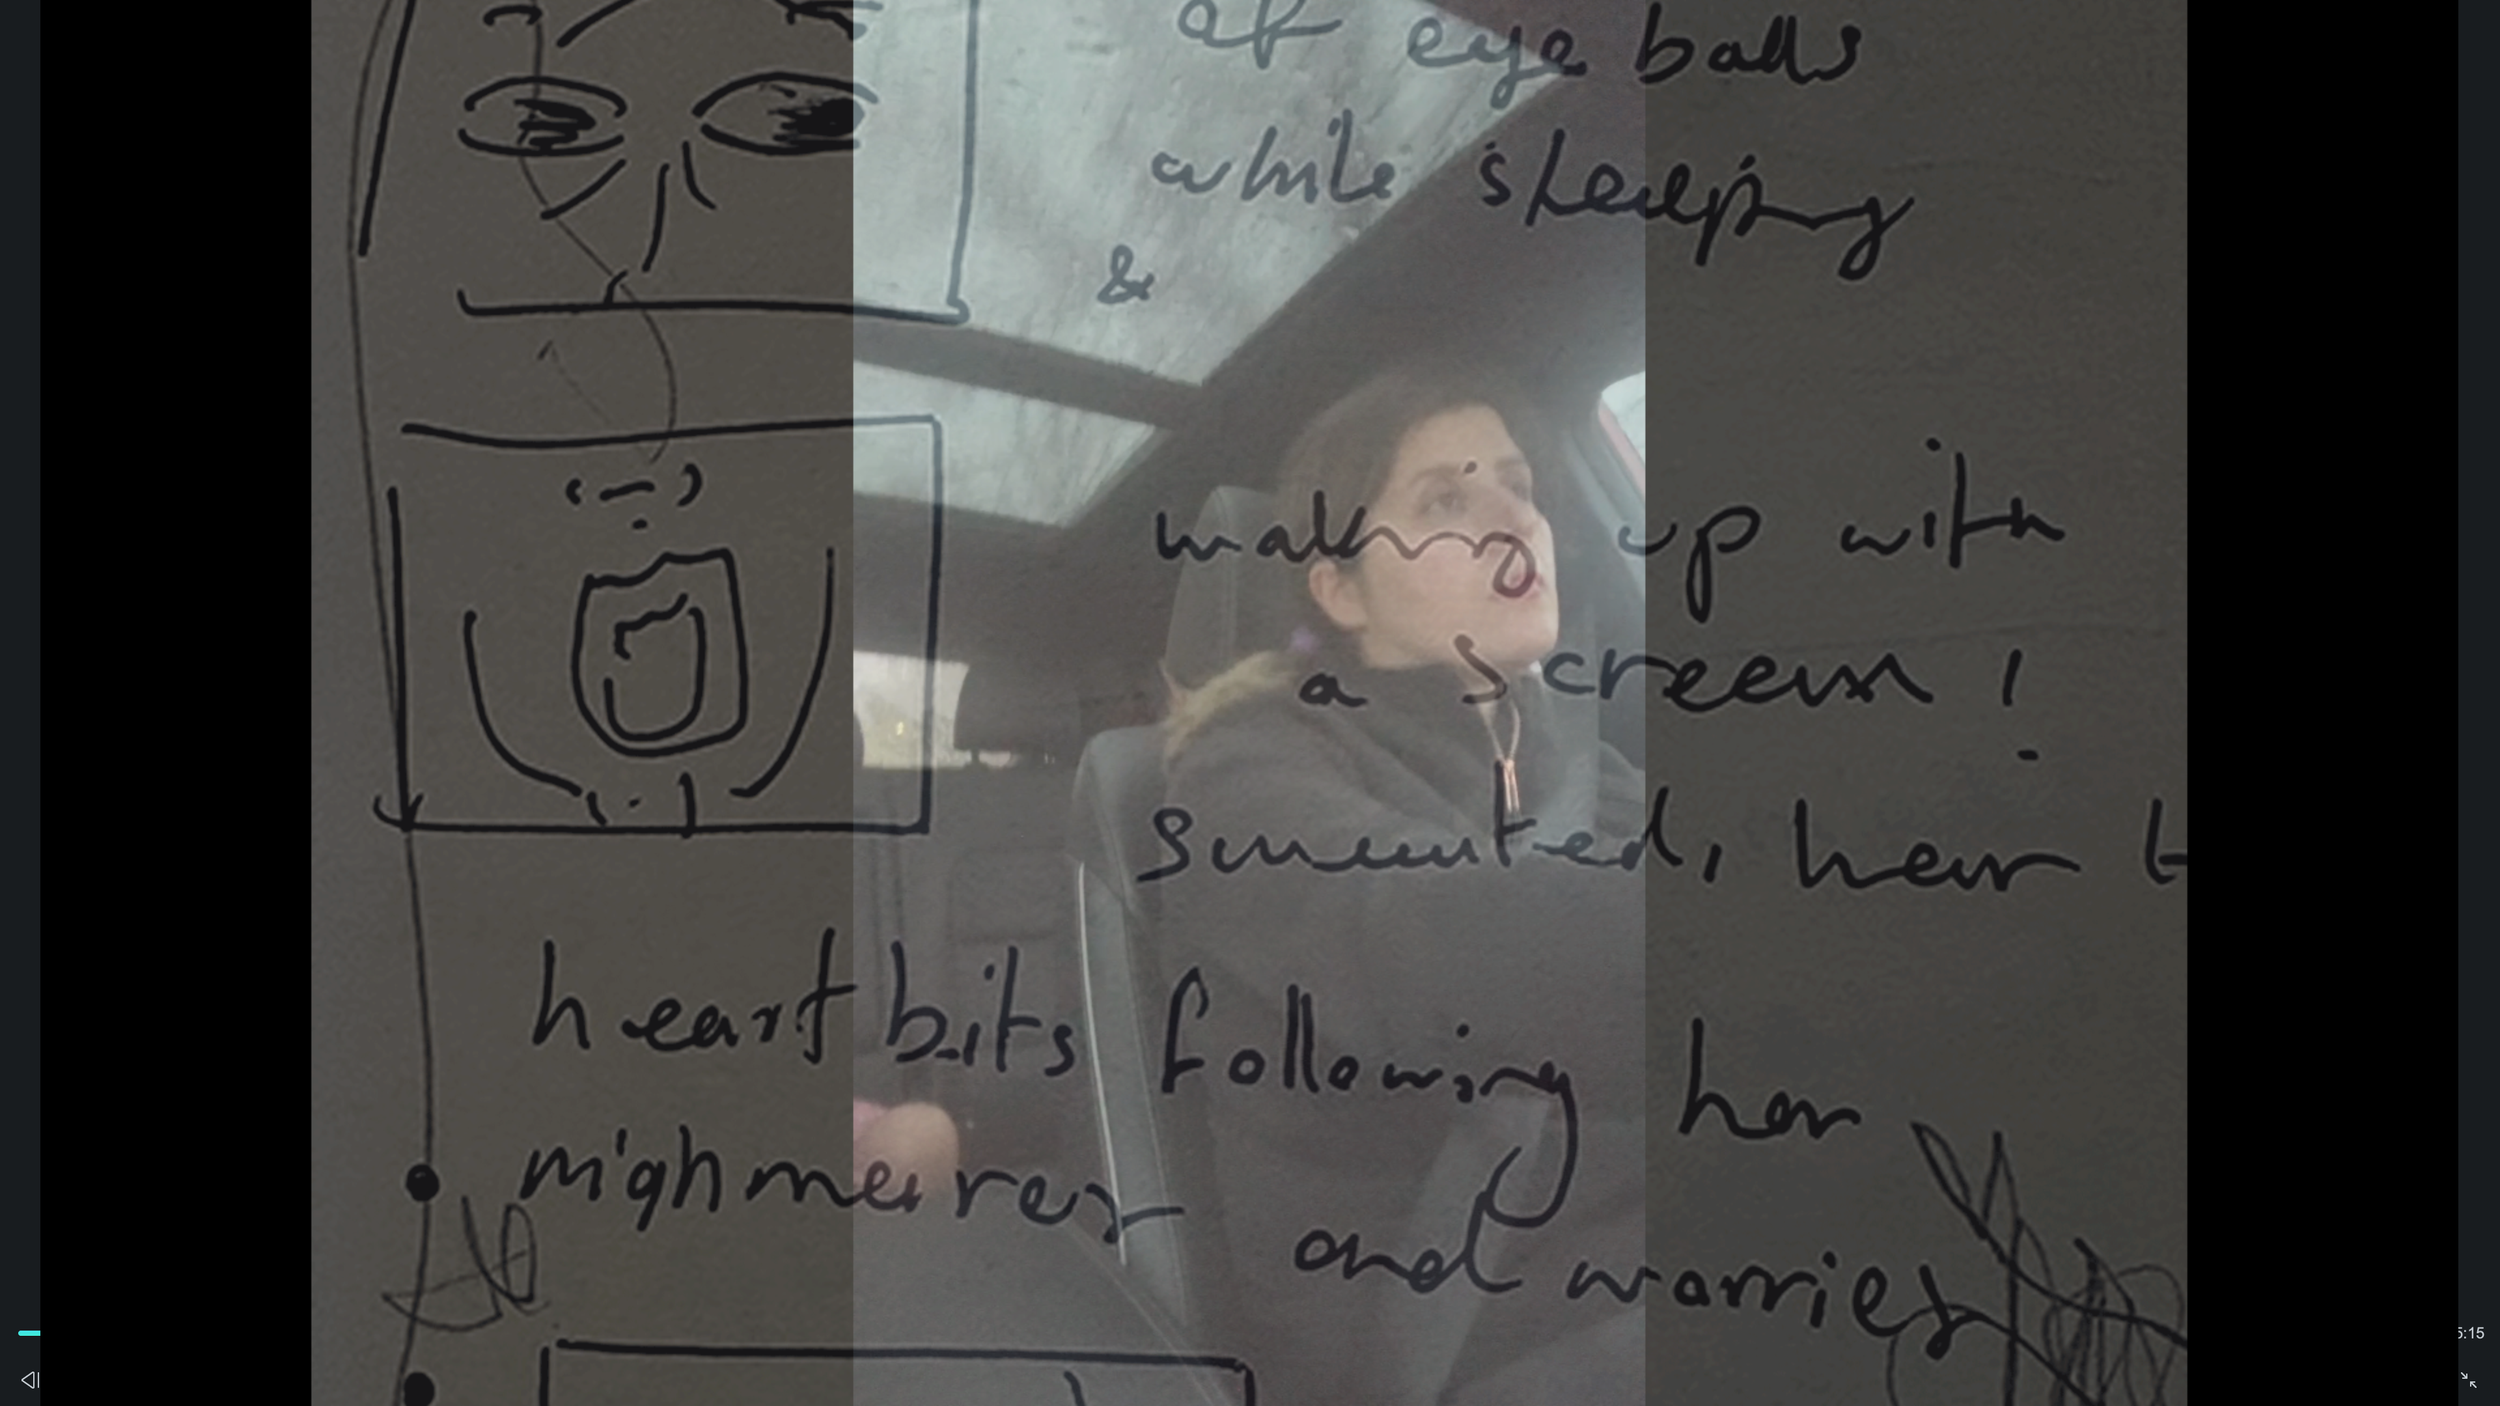 of eye balls
while sleeping
&
waking up with
a screem !
heart bits following her
nighmeares
and worries
5:15